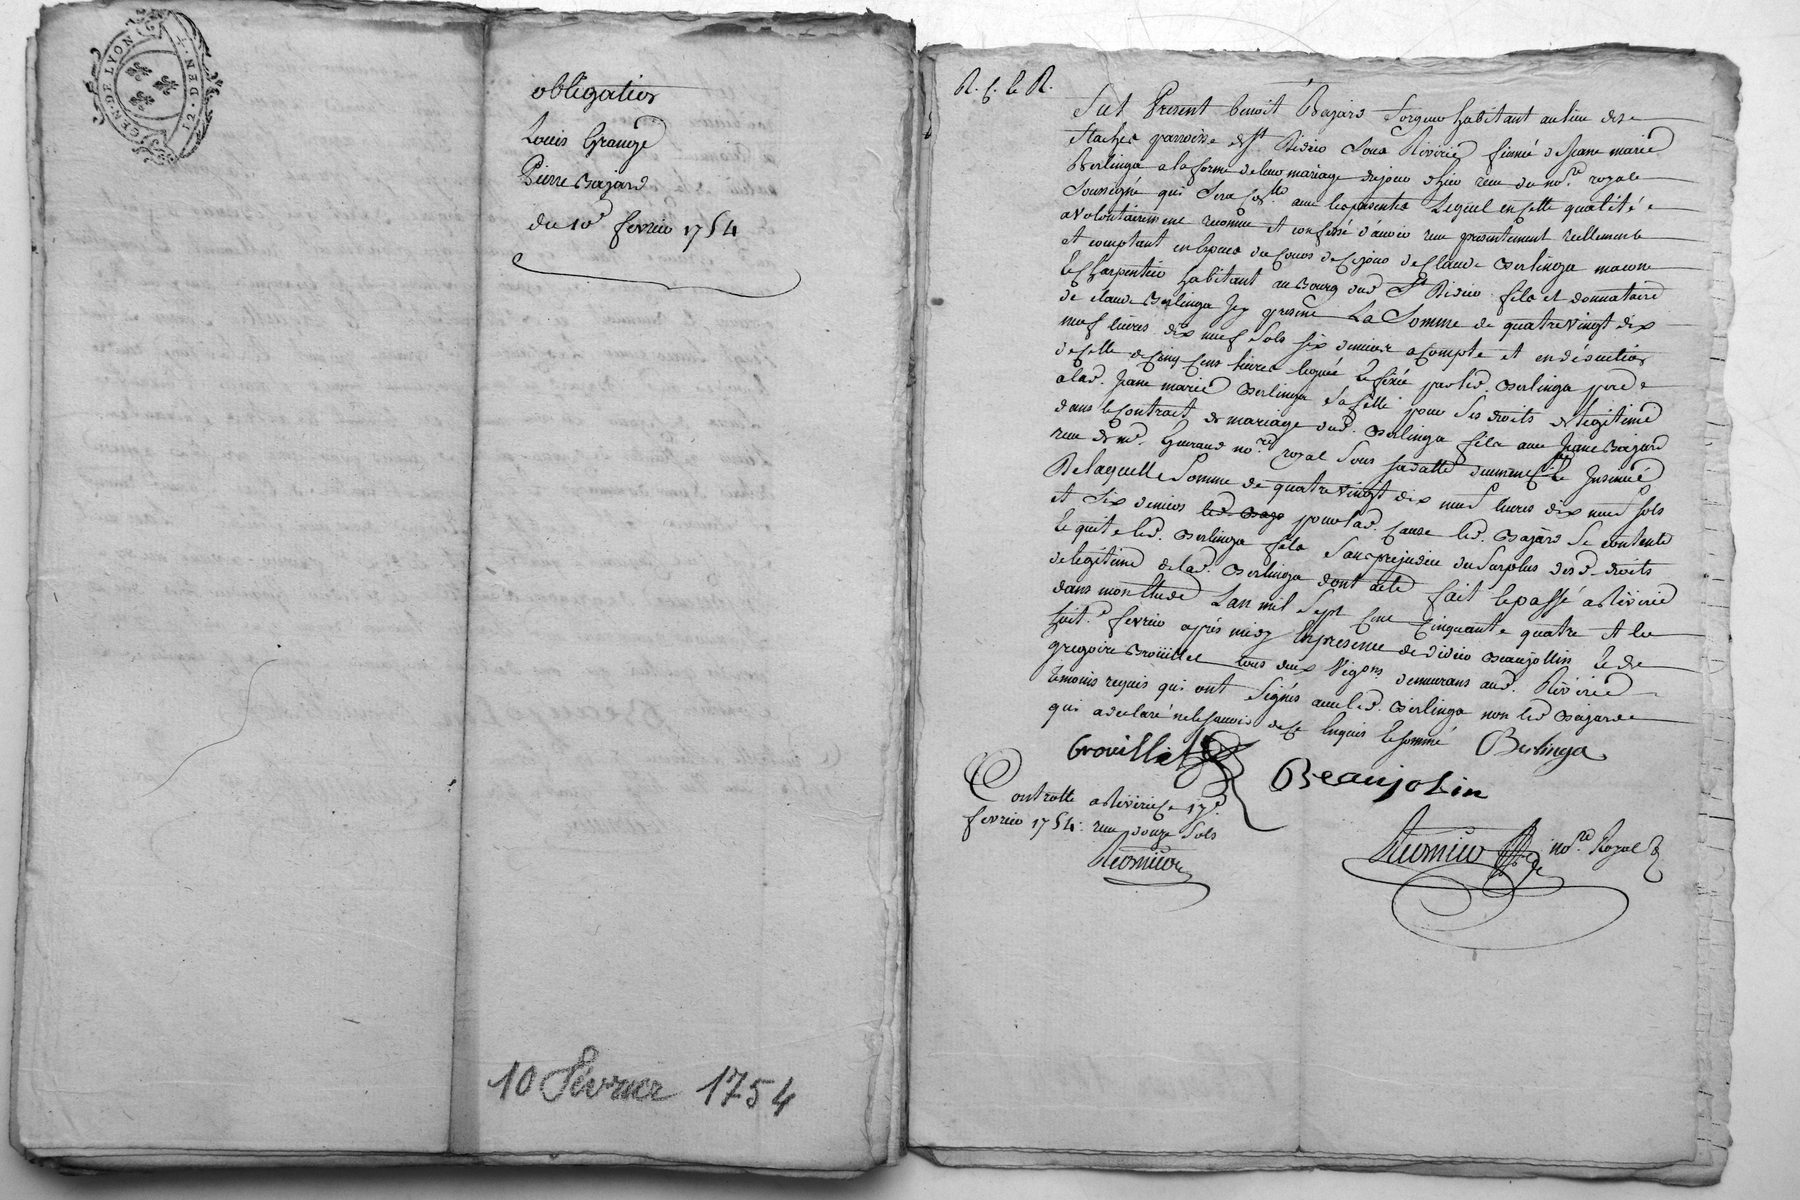 GEN. DE LYON
12. DEN.
obligation
Louis Grange
Pierre Bajard
du 10e fevrier 1754
10 Février 1754
R. C. le R.
Fut Present benoit Bajard forgeur habitant au lieu des
flaches parroisse de St. Didier sous Riviriee fiancé de Jeane marie
Berlinga a la forme de leur mariage dujour d'hier reçu du nore. royal
soussigné qui sera avec les presentes Lequel en cette qualité
a volontairement reconnu et confessé d'avoir reçu presentement reellement
et comptant en Especes du Cours de ce jour de Claude Berlinga macon
Et Charpentier habitant au Bourg dud. St. Didier fils et donnataire
de Claude Berlinga Icy present La Somme de quatre vingt dix
neuf livres dix neuf sols six deniers a compte et en déduction
de Celle de Cinq Cens livres leguée Et fixée par led. Berlinga pere
a lad. Jeane marie Berlinga sa fille pour ses droits de legitime
dans le Contrat de mariage dud. Berlinga fils avec Jeane Bajard
reçu de me. Guerand nore. royal sous sa datte duement Clé Insinué
De laquelle Somme de quatre vingt dix neuf livres dix neuf sols
et six deniers led. Baja pour lad. cause led. Bajard se contente
Et quitte led. Berlinga fils sans prejudice du surplus desd. droits
de legitime de lad. Berlinga dont acte fait Et passé a Riviriee
dans mon Etude L'an mil sept Cent Cinquante quatre et le
huit.e fevrier après midy En presence de didier Beaujollin Et de
gregoire Broüillet tous deux Vigons demeurans aud. Riviriee
temoins requis qui ont signés avec led. Berlinga non led Bajard
qui a declaré ne le sçavoir de ce Enquis Et sommé Berlinga
Brouillet
Beaujolin
Controllé a Riviriee le 17e.
fevrier 1754. reçu douze sols
nore. Royal